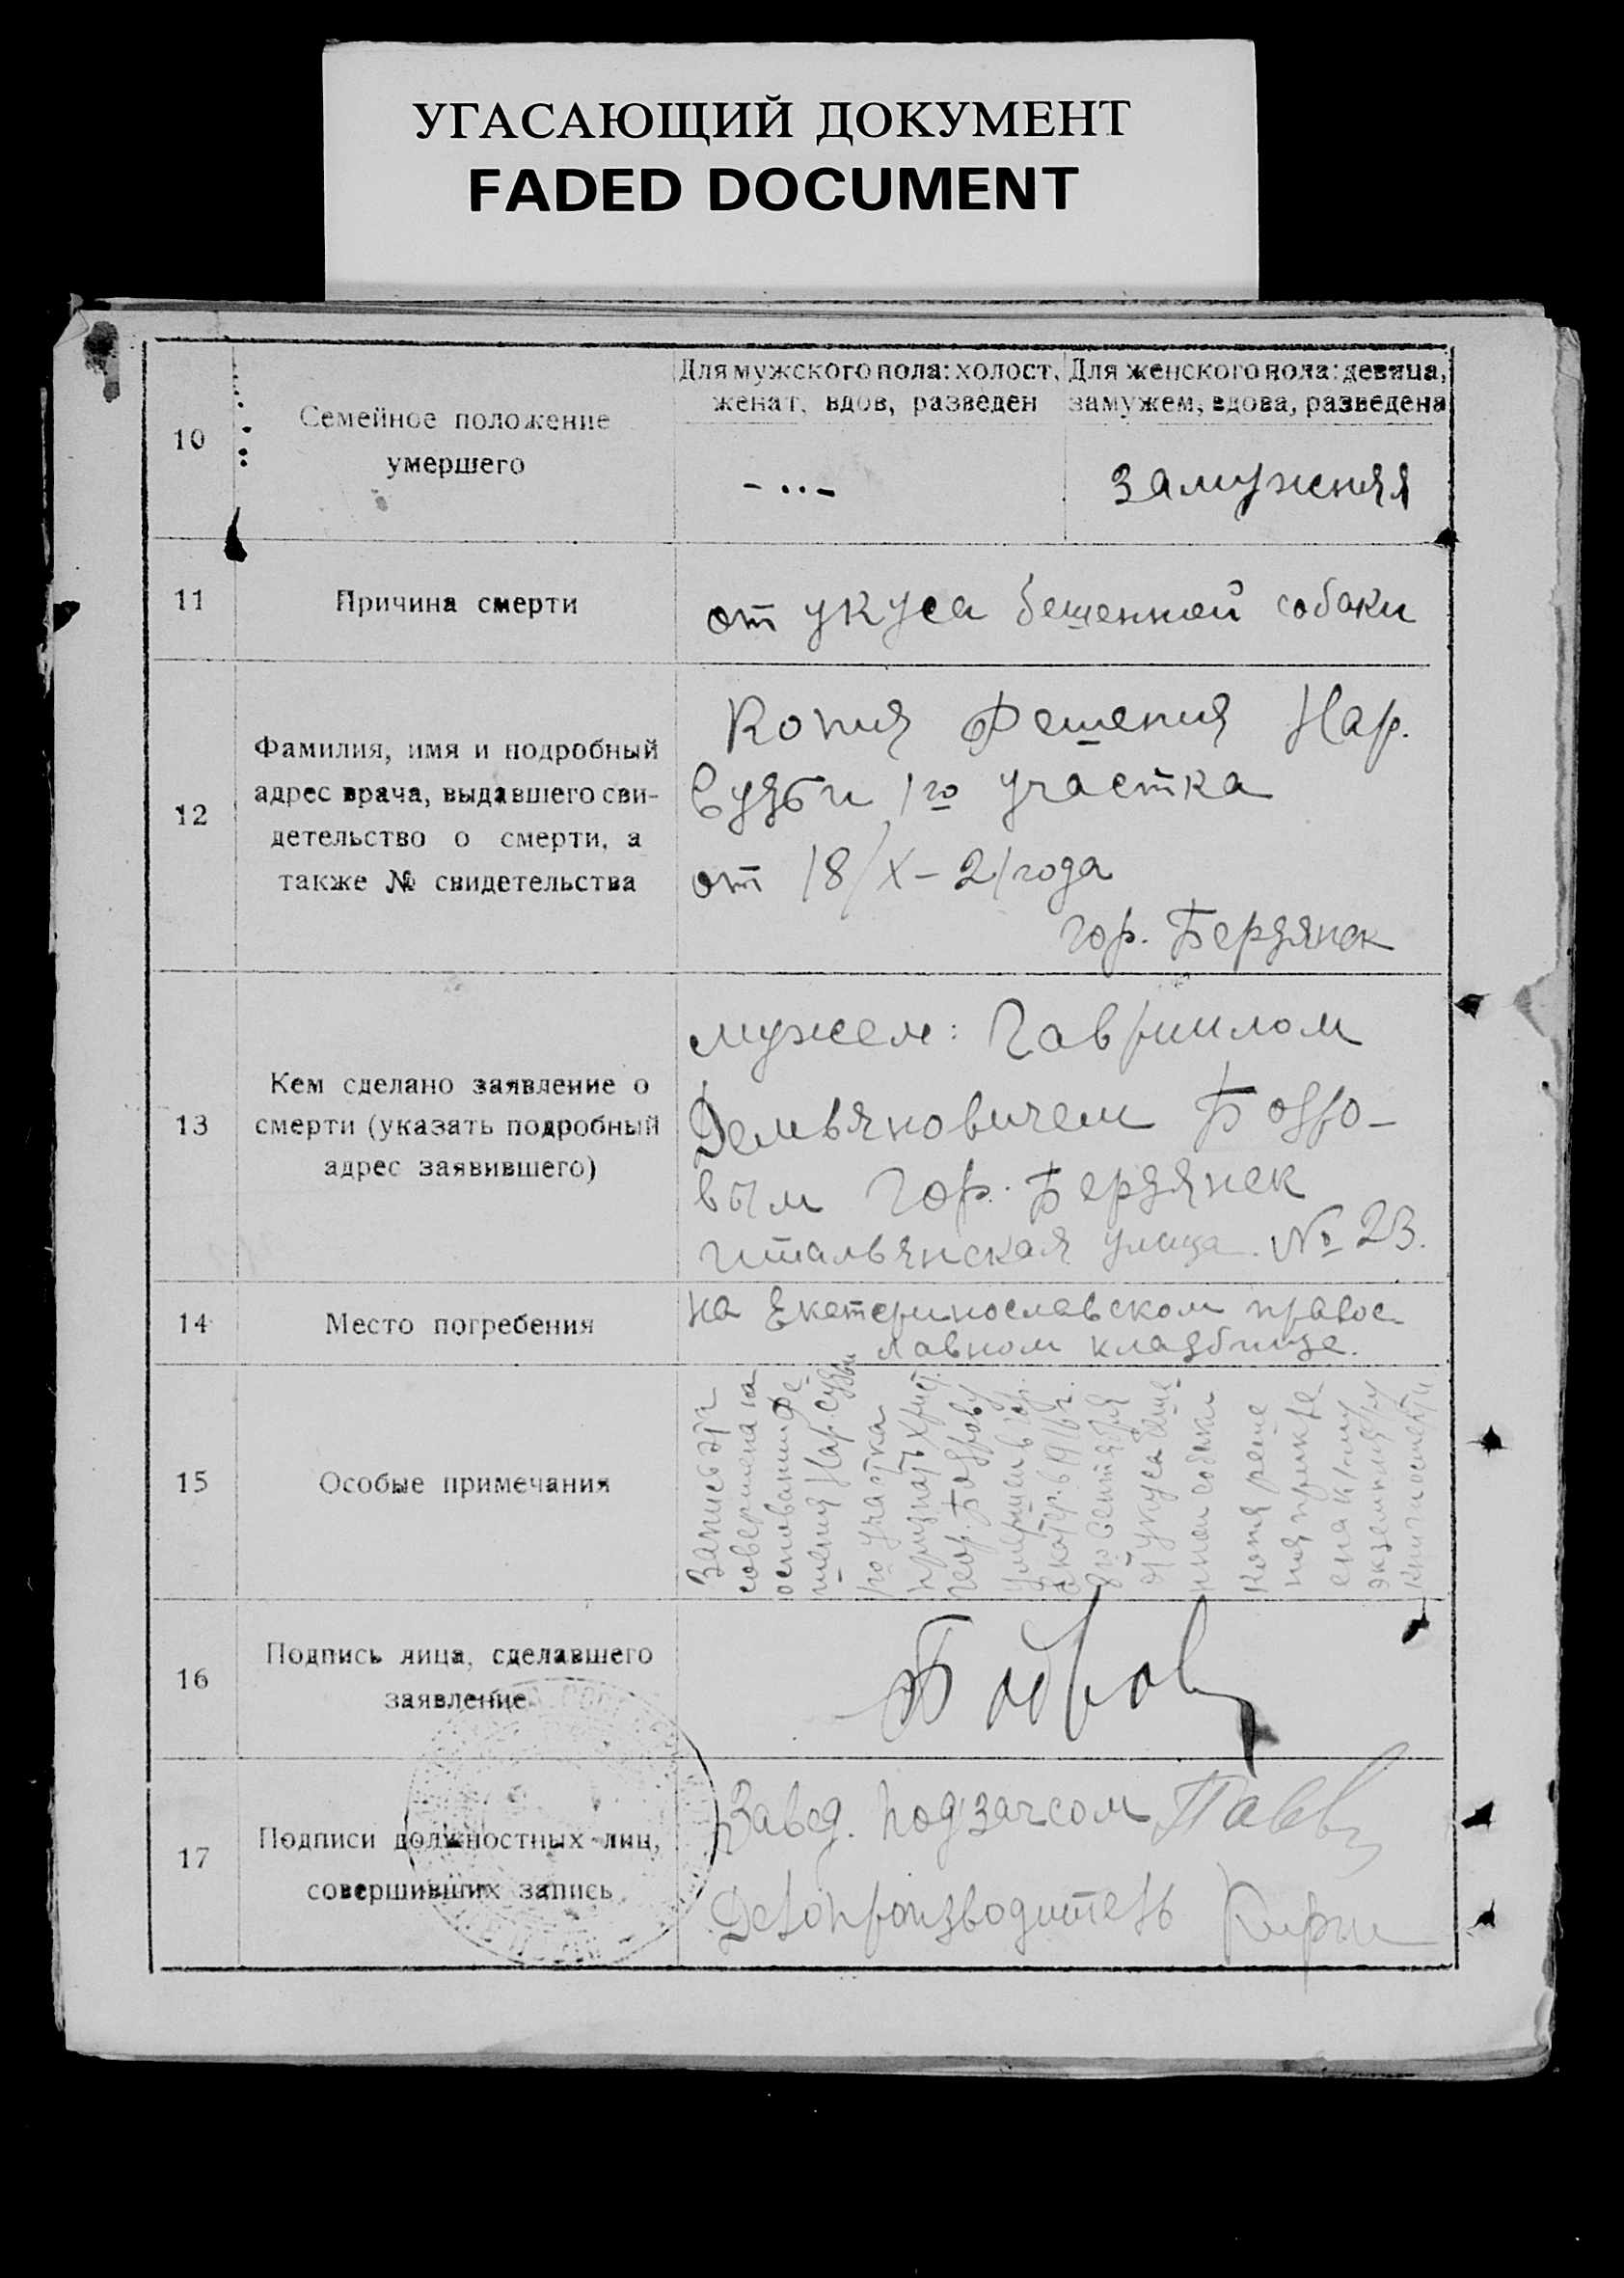 УГАСАЮЩИЙ ДОКУМЕНТ
FADED DOCUMENT
10
Семейное положение
умершего
Для мужского пола: холост,
женат, вдов, разведен
Для женского пола: девица,
замужем, вдова, разведена
- .. -
замужняя
11
Причина смерти
от укуса бешенной собаки
12
Фамилия, имя и подробный
адрес врача, выдавшего сви-
детельство о смерти, а
также № свидетельства
Копия Решения Нар.
Судьи 1го участка
от 18/X-21 года
гор. Бердянск
13
Кем сделано заявление о
смерти (указать подробный
адрес заявившего)
мужем: Гавриилом
Демьяновичем Бодро-
вым гор. Бердянск
итальянская улица № 23.
14
Место погребения
на Екатеринославском правос-
лавном кладбище.
15
Особые примечания
Запись эта
совершена на
основании Ре-
шения Нар. судьи
1го участка
признать Христ.
Бодрову
умершей в гор.
Екатер. в 1916 г.
сентября
от укуса беше-
нной собаки
Копия реше
ния приклее
ена к 1-му
экземпляру
книги о смерти
16
Подпись лица, сделавшего
заявление
Бодров
17
Подписи должностных лиц,
совершивших запись
Завед. подзагсом
Делопроизводитель